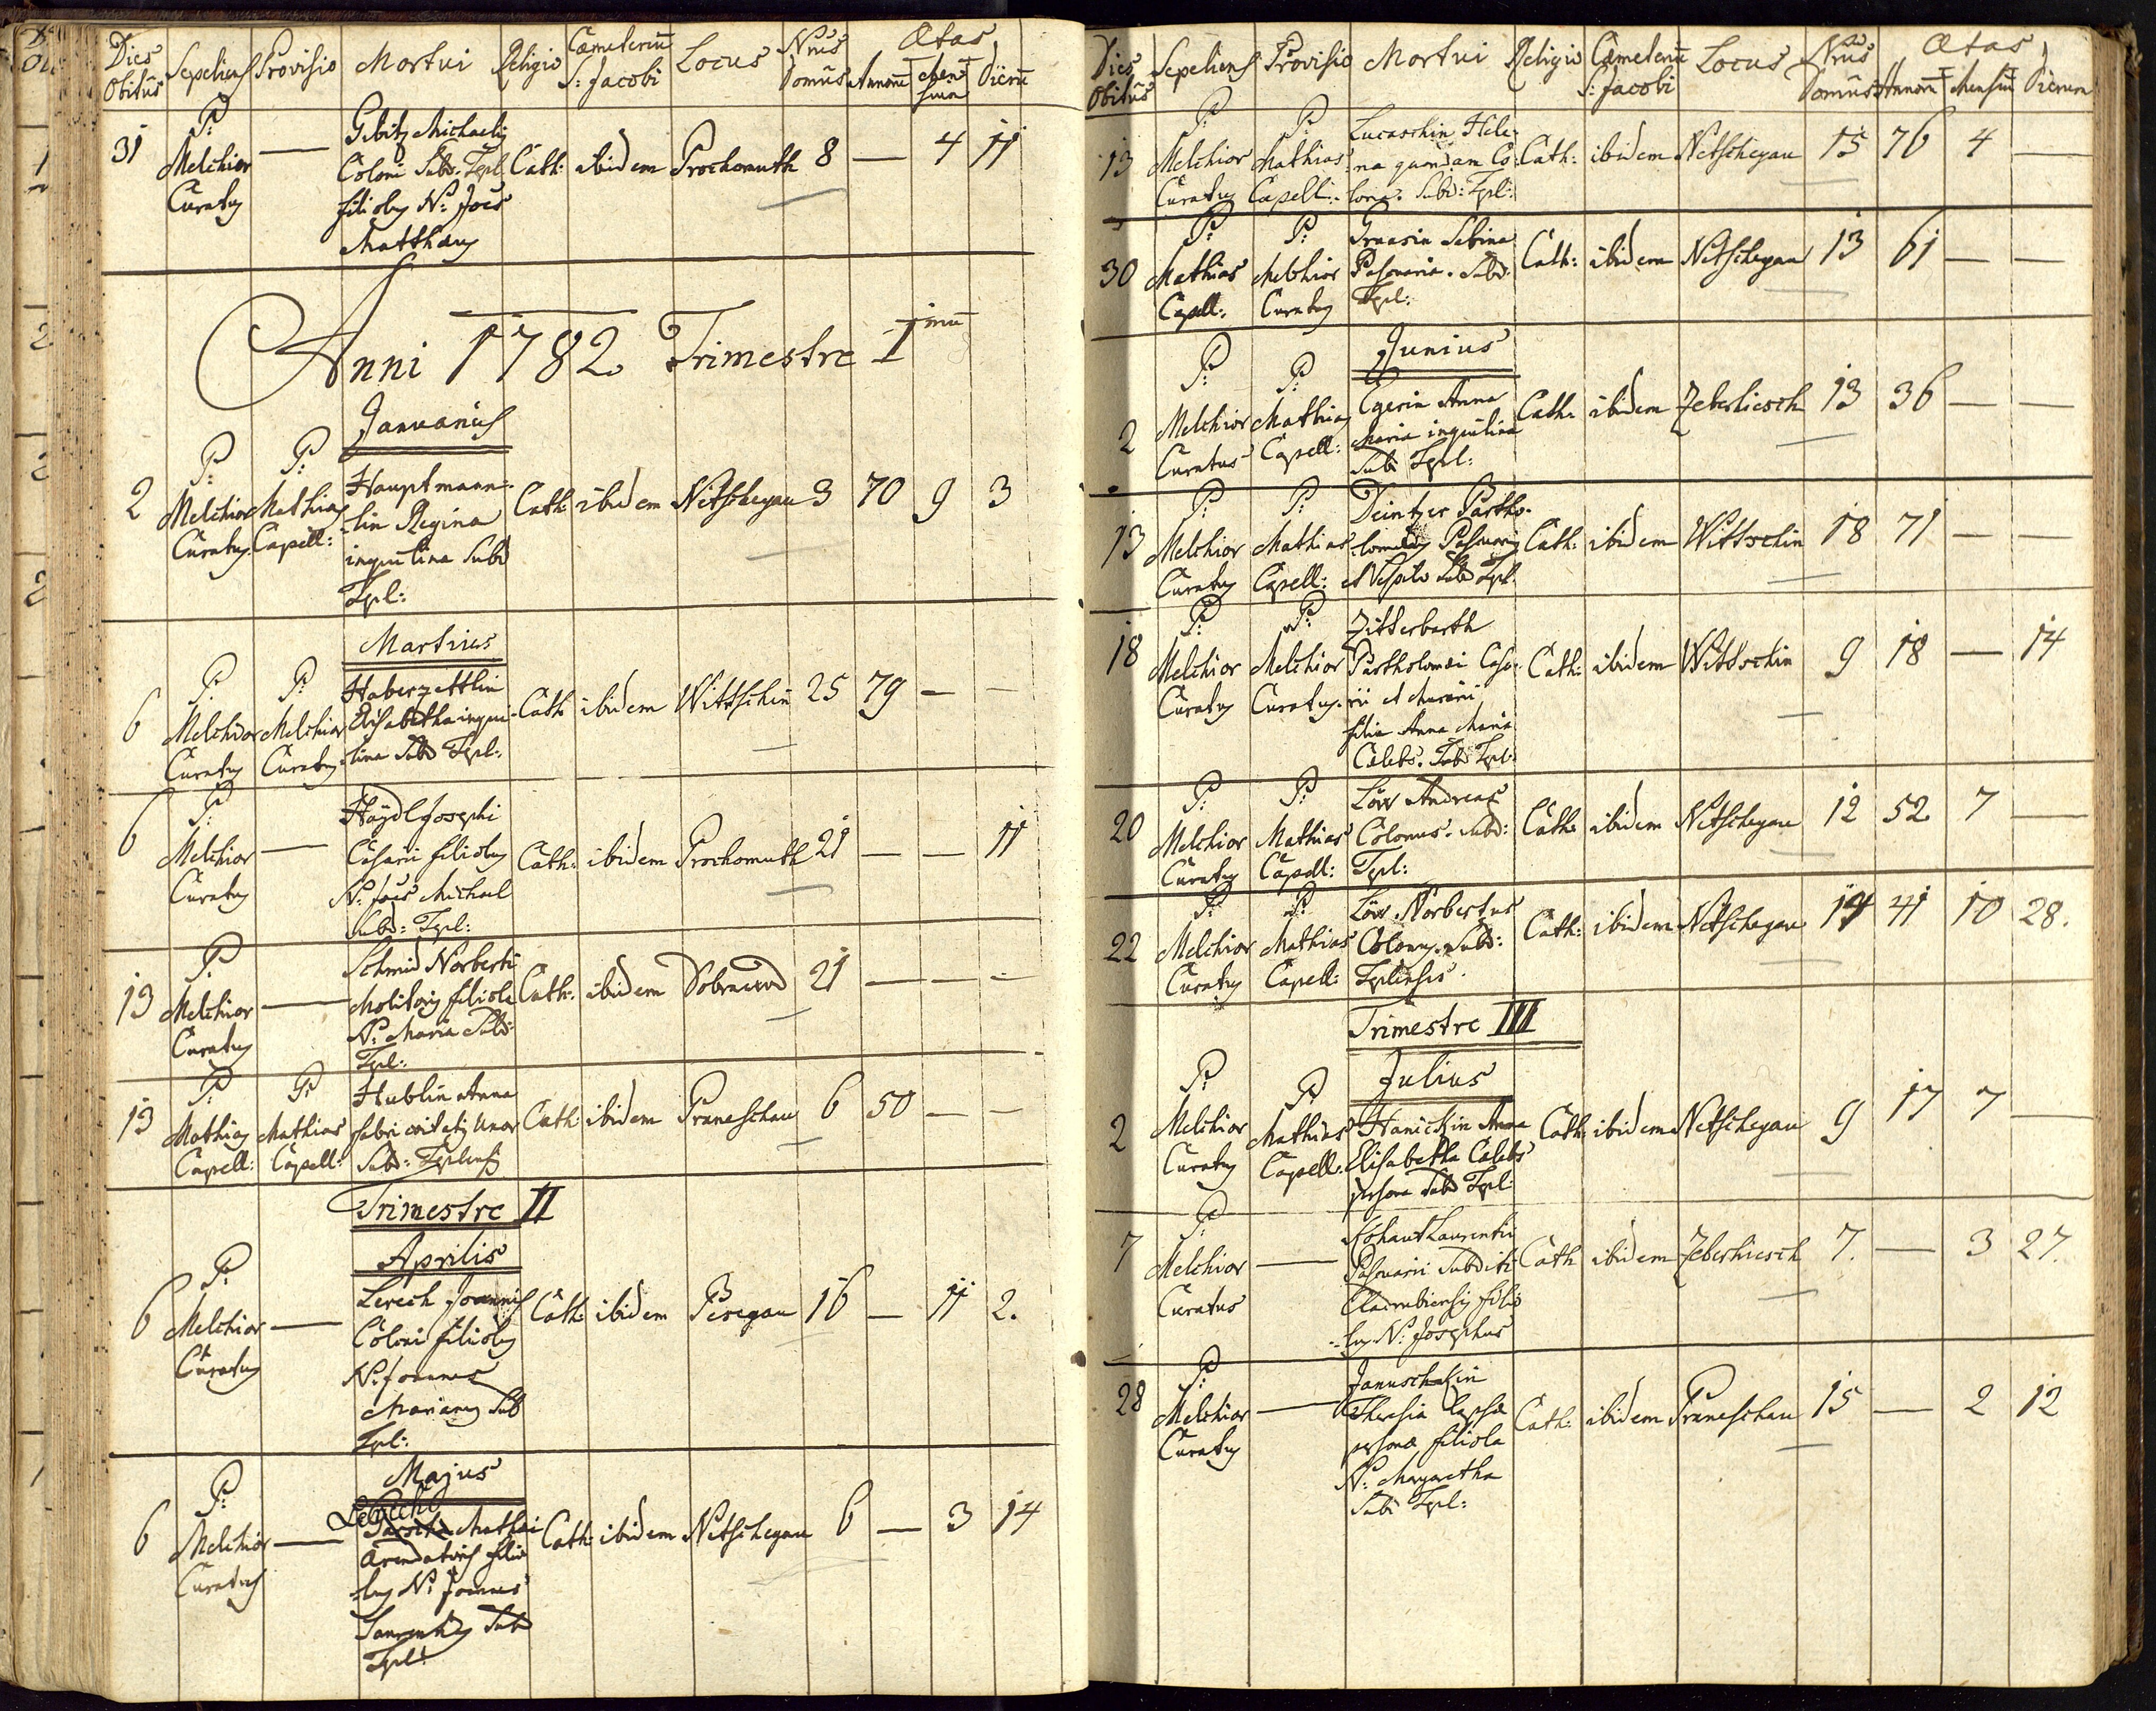 Dies Obitûs Sepeliens Provisio Mortui Religio Cæmeteriū S: Jacobi Locus Nrus Domûs Ætas Annorū Mensium Dierū
31 P: Melchior Curatus — Gibitz Michaelis Coloni Subd. Tepl. filiolus N: Joës Matthæus Cath: ibidem Prochomuth 8 — 4 11
Anni 1782 Trimestre I mū
Januarius
2 P: Melchior Curatus P: Mathias Capell: Hauptmann-
lin Regina
inquilina Subd
Tepl: Cath: ibidem Netschegau 3 70 9 3
Martius
6 P: Melchior Curatus P: Melchior Curatus Haberzettlin
Elisabetha inqui-
lina Subd Tepl: Cath ibidem Wittschin 25 79 — —
6 P: Melchior Curatus — Haÿdl Josephi
Casarii filiolus
N: Joës Michael
Subd: Tepl: Cath: ibidem Prochomuth 21 — — 11
13 P: Melchior Curatus — Schmid Norberti
Molitoris filiola
N: Maria Subd:
Tepl: Cath: ibidem 21 — — —
13 P: Mathias Capell: P: Mathias Capell: Hublin Anna
fabri uxor
Subd: Teplensis Cath: ibidem Praneschau 6 50 — —
Trimestre II
Aprilis
6 P: Melchior Curatus — Lerech Joannis
Coloni filiolus
N: Joannes
Marianus Sub
Tepl: Cath: ibidem Peregau 16 — 11 2.
Majus
6 P: Melchior Curatus — Mathæi
Arendatoris filio
lus N: Joannes
Laurentius Subd
Tepl: Cath: ibidem Netschegau 6 — 3 14
Dies Obitûs Sepeliens Provisio Mortui Religio Cæmeteriū S: Jacobi Locus Nrus Domûs Ætas Annorū Mensiū Dierum
13 P: Melchior Curatus P: Mathias Capell: Lucaschin Hele-
na quondam Co-
lona. Subd: Tepl: Cath: ibidem Netschegau 15 76 4 —
30 P: Mathias Capell: P: Melchior Curatus Sabina
Subd:
Tepl: Cath: ibidem Netschegau 13 61 — —
Junius
2 P: Melchior Curatus P: Mathias Capell: Egerin Anna
Maria inquilina
Subd Tepl: Cath: ibidem Zeberhiesch 13 36 — —
13 P: Melchior Curatus P: Mathias Capell: Deintzer Bartho-
lomæus
Subd Tepl. Cath: ibidem Wittschin 18 71 — —
18 P: Melchior Curatus P: Melchior Curatus Zitterbarth
Bartholomæi Casa-
rii et Murarii
filia Anna Maria
Cælebs. Subd Tepl: Cath: ibidem Wittschin 9 18 — 14
20 P: Melchior Curatus P: Mathias Capell: Löw Andreas
Colonus. Subd:
Tepl: Cath: ibidem Netschegau 12 52 7 —
22 P: Melchior Curatus P: Mathias Capell: Löw Norbertus
Colonus. Subd:
Teplensis. Cath: ibidem Netschegau 14 41 10 28.
Trimestre III
Julius
2 P: Melchior Curatus P: Mathias Capell: Hanickin Anna
Elisabetha Cælebs
persona Subd Tepl: Cath: ibidem Netschegau 9 17 7 —
7 P: Melchior Curatus — Kohaut Laurentii
Subditi
Cladrubiensis filio
lus N: Josephus Cath ibidem Zeberhiesch 7. — 3 27.
28 P: Melchior Curatus — Januschkin
Theresia lapsæ
personæ filiola
N: Margaretha
Subd Tepl: Cath: ibidem Praneschau 15 — 2 12